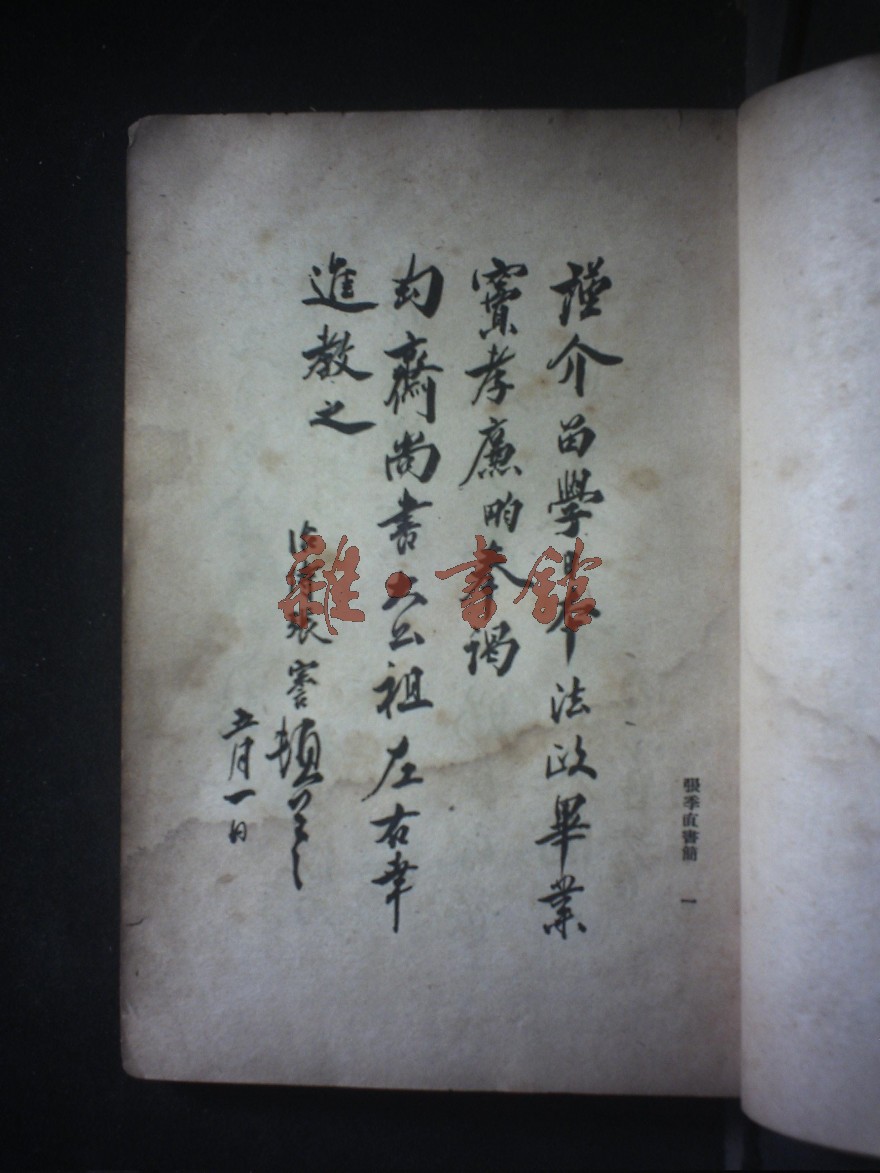 張季直書簡 一
謹介留學日本法政畢業
竇孝廉畇奉謁
匋齋尚書大公祖左右幸
進教之
治 張謇頓首
五月一日
雜·書館